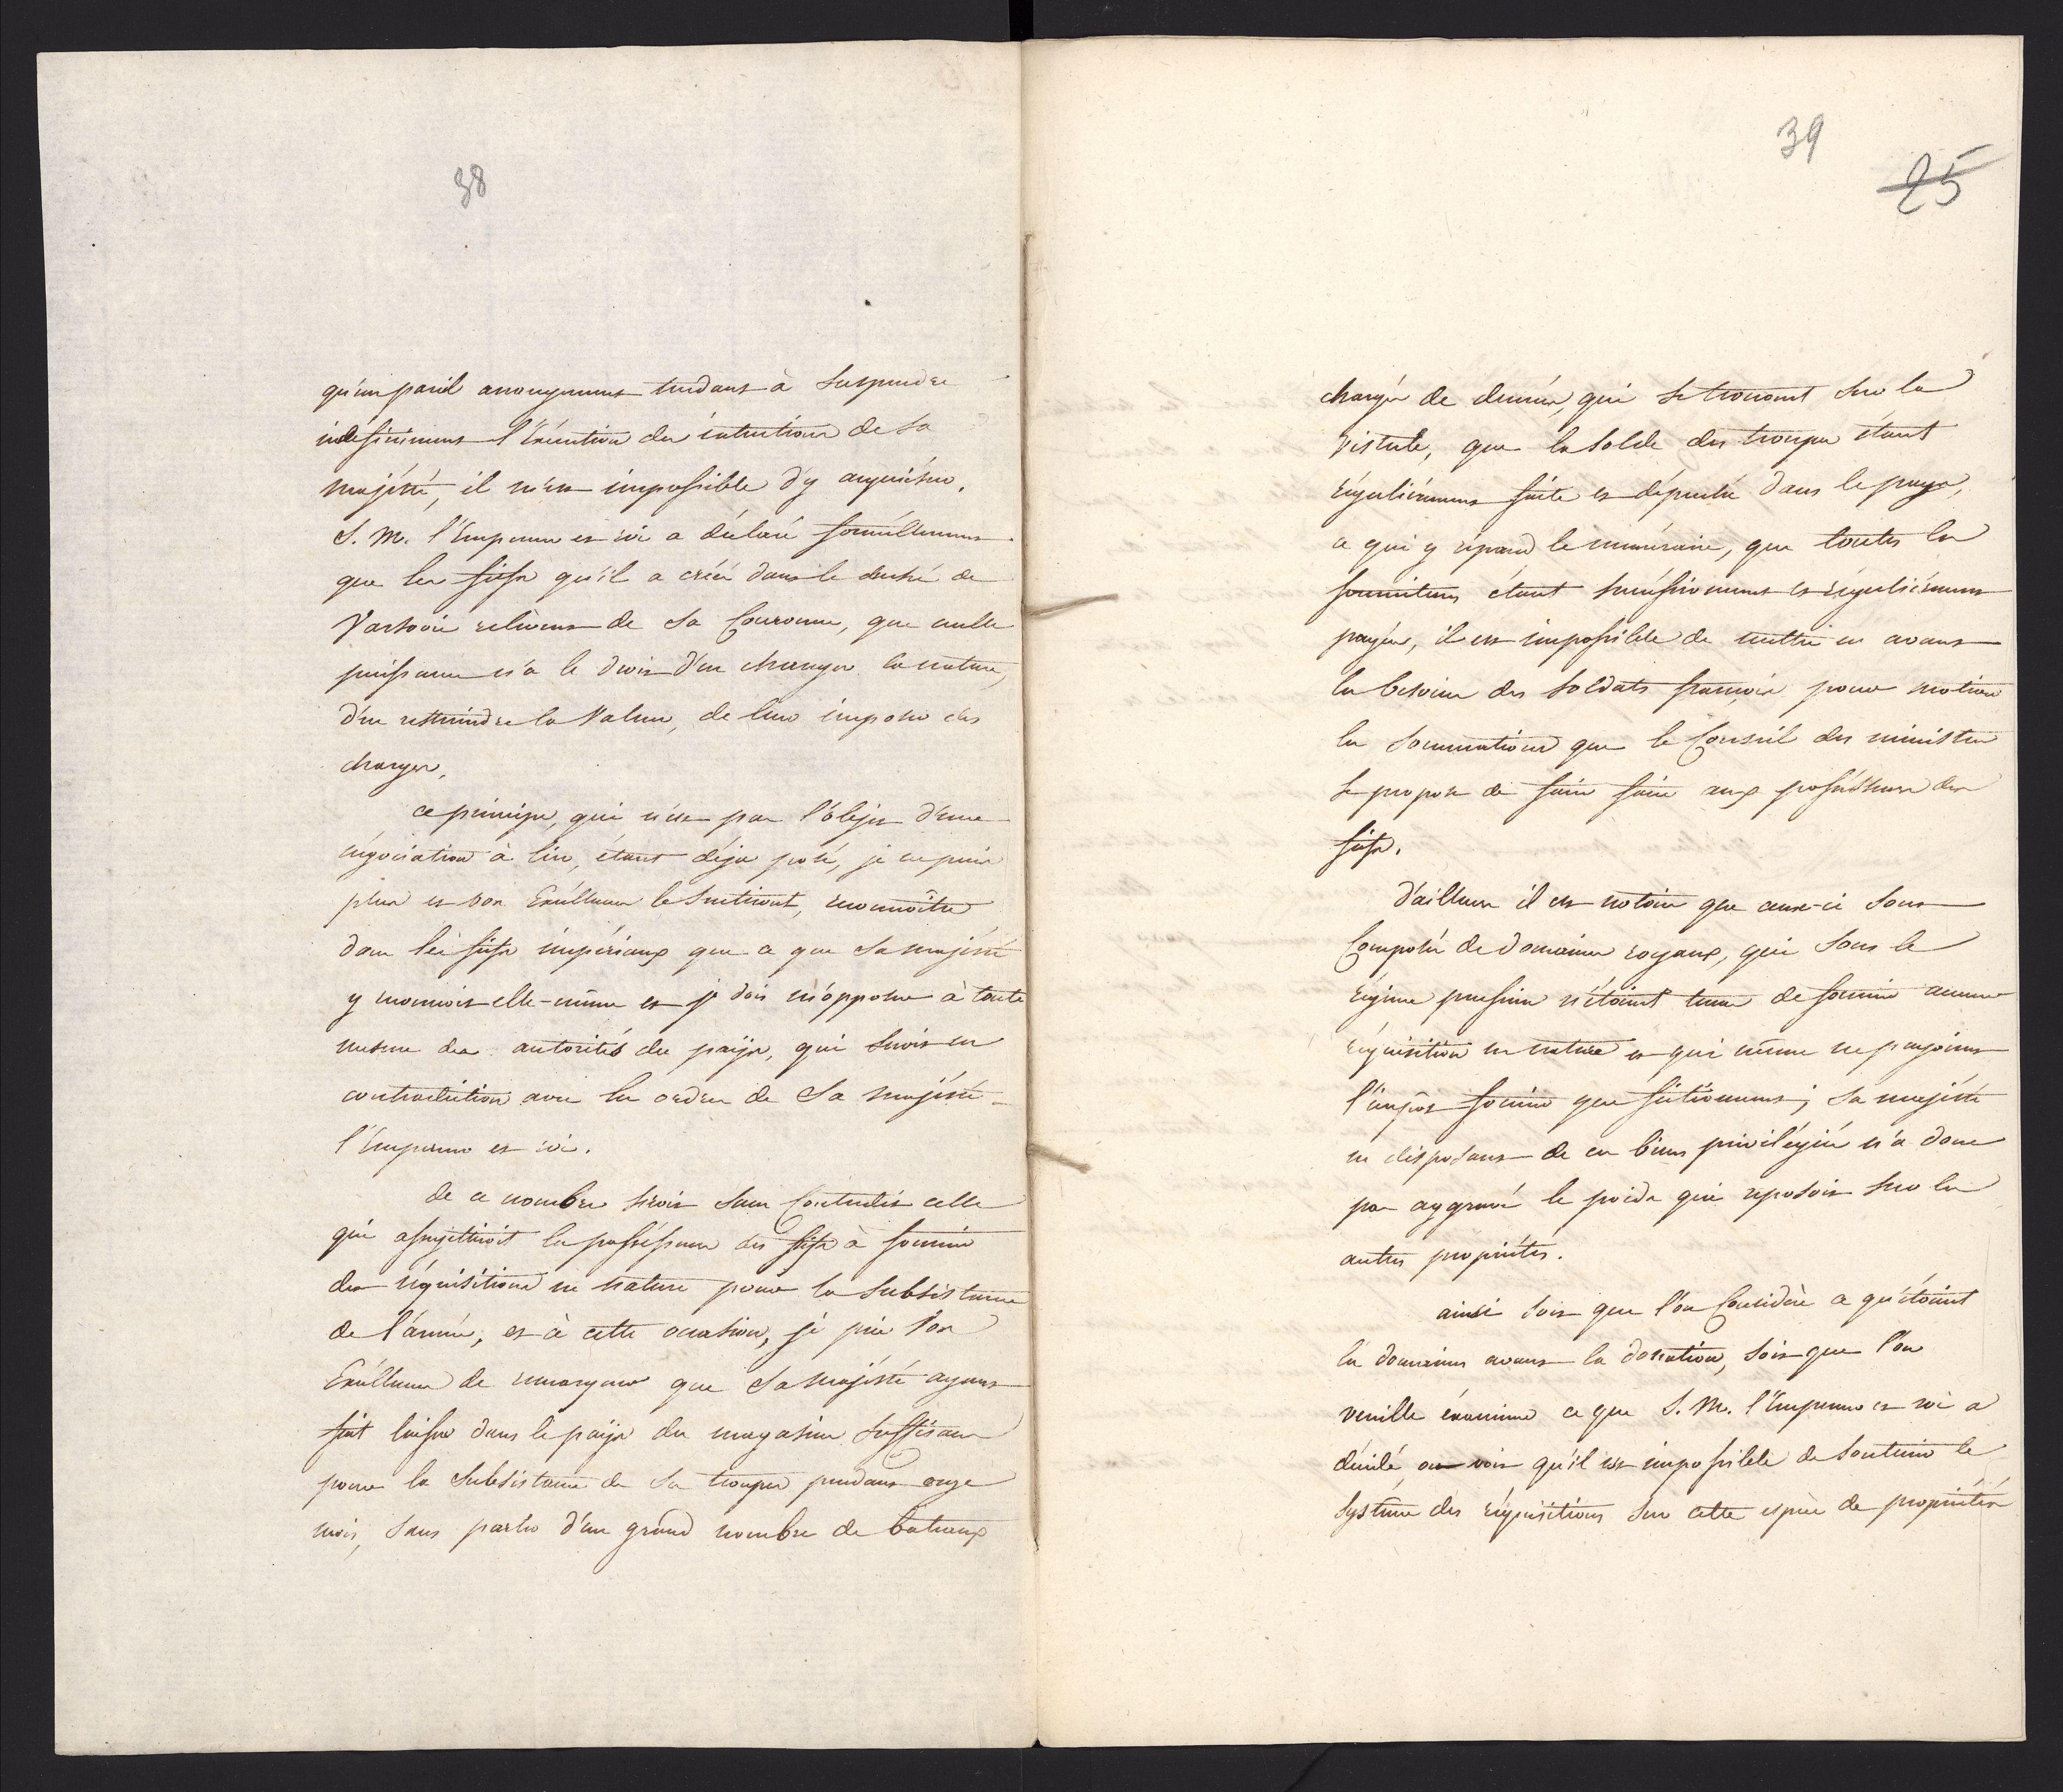 38
qu'un pareil arrangement tendant à suspendre
indéfiniment l'exécution des intentions de sa
majésté, il m'est impossible d'y acquiescer.
S. M. l'Empereur et roi a déclaré formellement
que les fiefs qu'il a créé dans le duché de
Varsovie relèvent de sa Couronne, que nulle
puissance n'a le droit d'en changer la nature,
d'en restreindre la valeur, de leur imposer des
charges.
ce principe, qui n'est pas l'objet d'une
négociation à lier, étant déja posé, je ne puis
plus et son Excéllence le sentiront, reconnoître
dans les fiefs impériaux que ce que sa majésté
y reconnoit elle-même et je dois m'opposer à toute
mesure des autorités du païs, qui seroit en
contradiction avec les ordres de Sa majésté
l'Empereur et roi.
de ce nombre seroit sans Contredit celle
qui assujettiroit les possésseurs des fiefs à fournir
des réquisitions en nature pour la subsistance
de l'armée, et à cette occasion, je prie son
Excéllence de remarquer que sa Majésté ayant
fait laisser dans le païs des magasins suffisans
pour la Subsistance de ses troupes pendant onze
mois, sans parler d'un grand nombre de bateaux
39
25
chargés de denrées, qui se trouvent sur la
vistule, que la solde des troupes étant
régulièrement faite et dépensée dans le pays,
ce qui y répand le numéraire, que toutes les
fournitures étant succéssivement et régulièrement
payées, il est impossible de mettre en avant
les besoins des soldats françois pour motiver
les sommations que le Conseil des ministres
se propose de faire faire aux posséssseurs des
fiefs.
D'ailleurs il est notoire que ceux-ci sont
Composés de domaines royaux, qui sous le
régime prussien n'étoient tenus de fournir aucune
réquisition en nature et qui même ne payoient
l'impôt foncier que fictivement; sa majésté
en disposant de ces biens privilégiés n'a donc
pas aggravé le poids qui reposoit sur les
autres propriétés.
ainsi soit que l'on Considère ce qu'étoient
les domaines avant la donation, soit que l'on
veuille éxaminer ce que S. M. l'Empereur et roi a
décidé, on voit qu'il est impossible de soutenir le
système des réquisitions sur cette espèce de propriétés